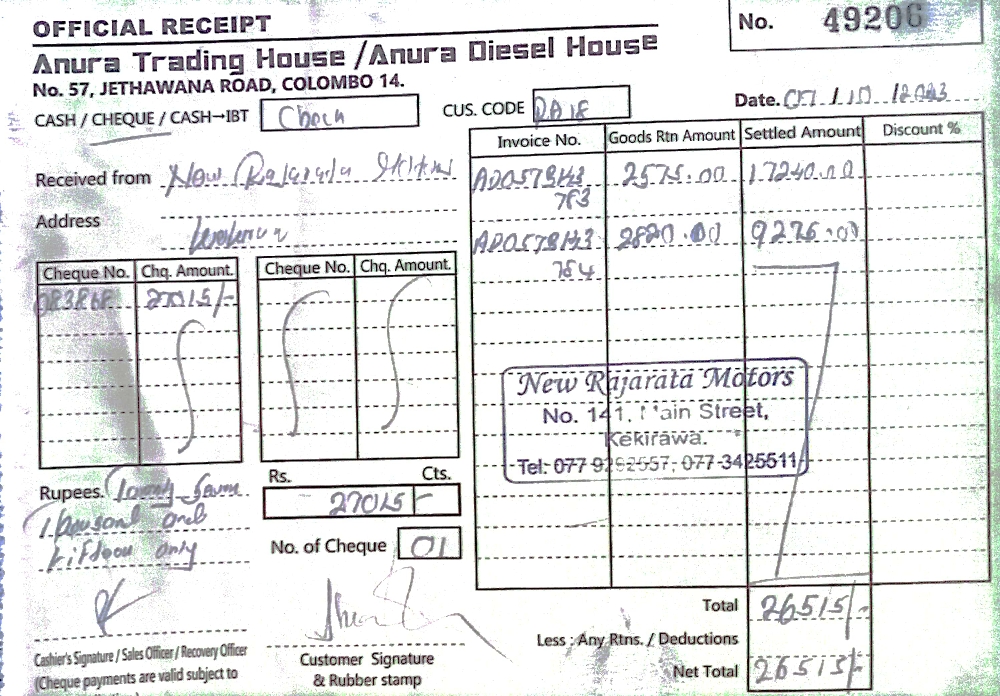 OFFICIAL RECEIPT
No. 49206
Anura Trading House /Anura Diesel House
No. 57, JETHAWANA ROAD, COLOMBO 14.
CASH / CHEQUE / CASH→IBT
CUS. CODE
Date. 07/10/2023
Invoice No. Goods Rtn Amount Settled Amount Discount %
Received from New
2575.00 17240.00
783
Address
2820.00 9276.00
784
Cheque No. Chq. Amount. Cheque No. Chq. Amount.
27015/-
New Rajarata Motors
No. 141, Main Street,
Kekirawa.
Tel: 077-9292557, 077-3425511
Rupees.
Thousand and
only
Rs. Cts.
27015 -
No. of Cheque 01
Total 26515/-
Less : Any Rtns. / Deductions
Net Total 26515/-
Cashier's Signature / Sales Officer / Recovery Officer
(Cheque payments are valid subject to
Customer Signature
& Rubber stamp